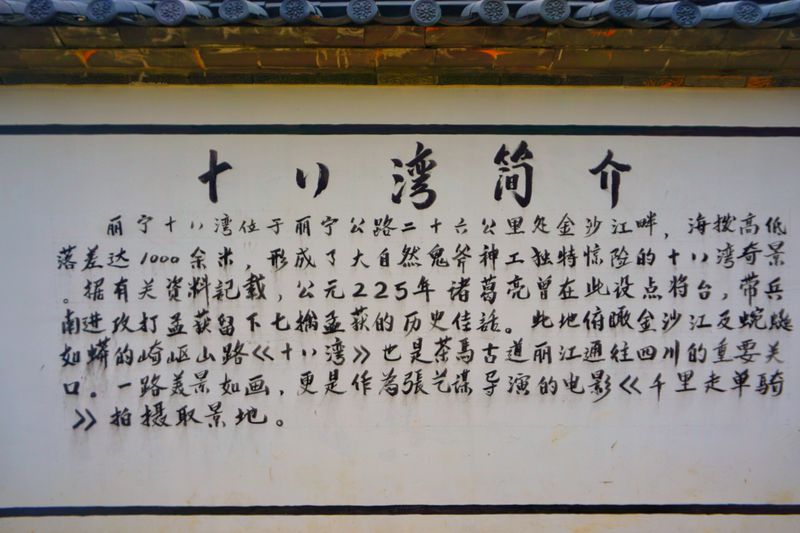 十八湾简介
丽宁十八湾位于丽宁公路二十六公里处金沙江畔，海拨高低
落差达1000余米，形成了大自然鬼斧神工独特惊险的十八湾奇景
。据有关资料記載，公元225年诸葛亮曾在此设点将台，带兵
南进攻打孟获留下七擒孟获的历史佳話。此地俯瞰金沙江及蜿蜒
如蟒的崎岖山路《十八湾》也是茶马古道丽江通往四川的重要关
口。一路美景如画，更是作为張艺谋导演的电影《千里走单騎
》拍摄取景地。